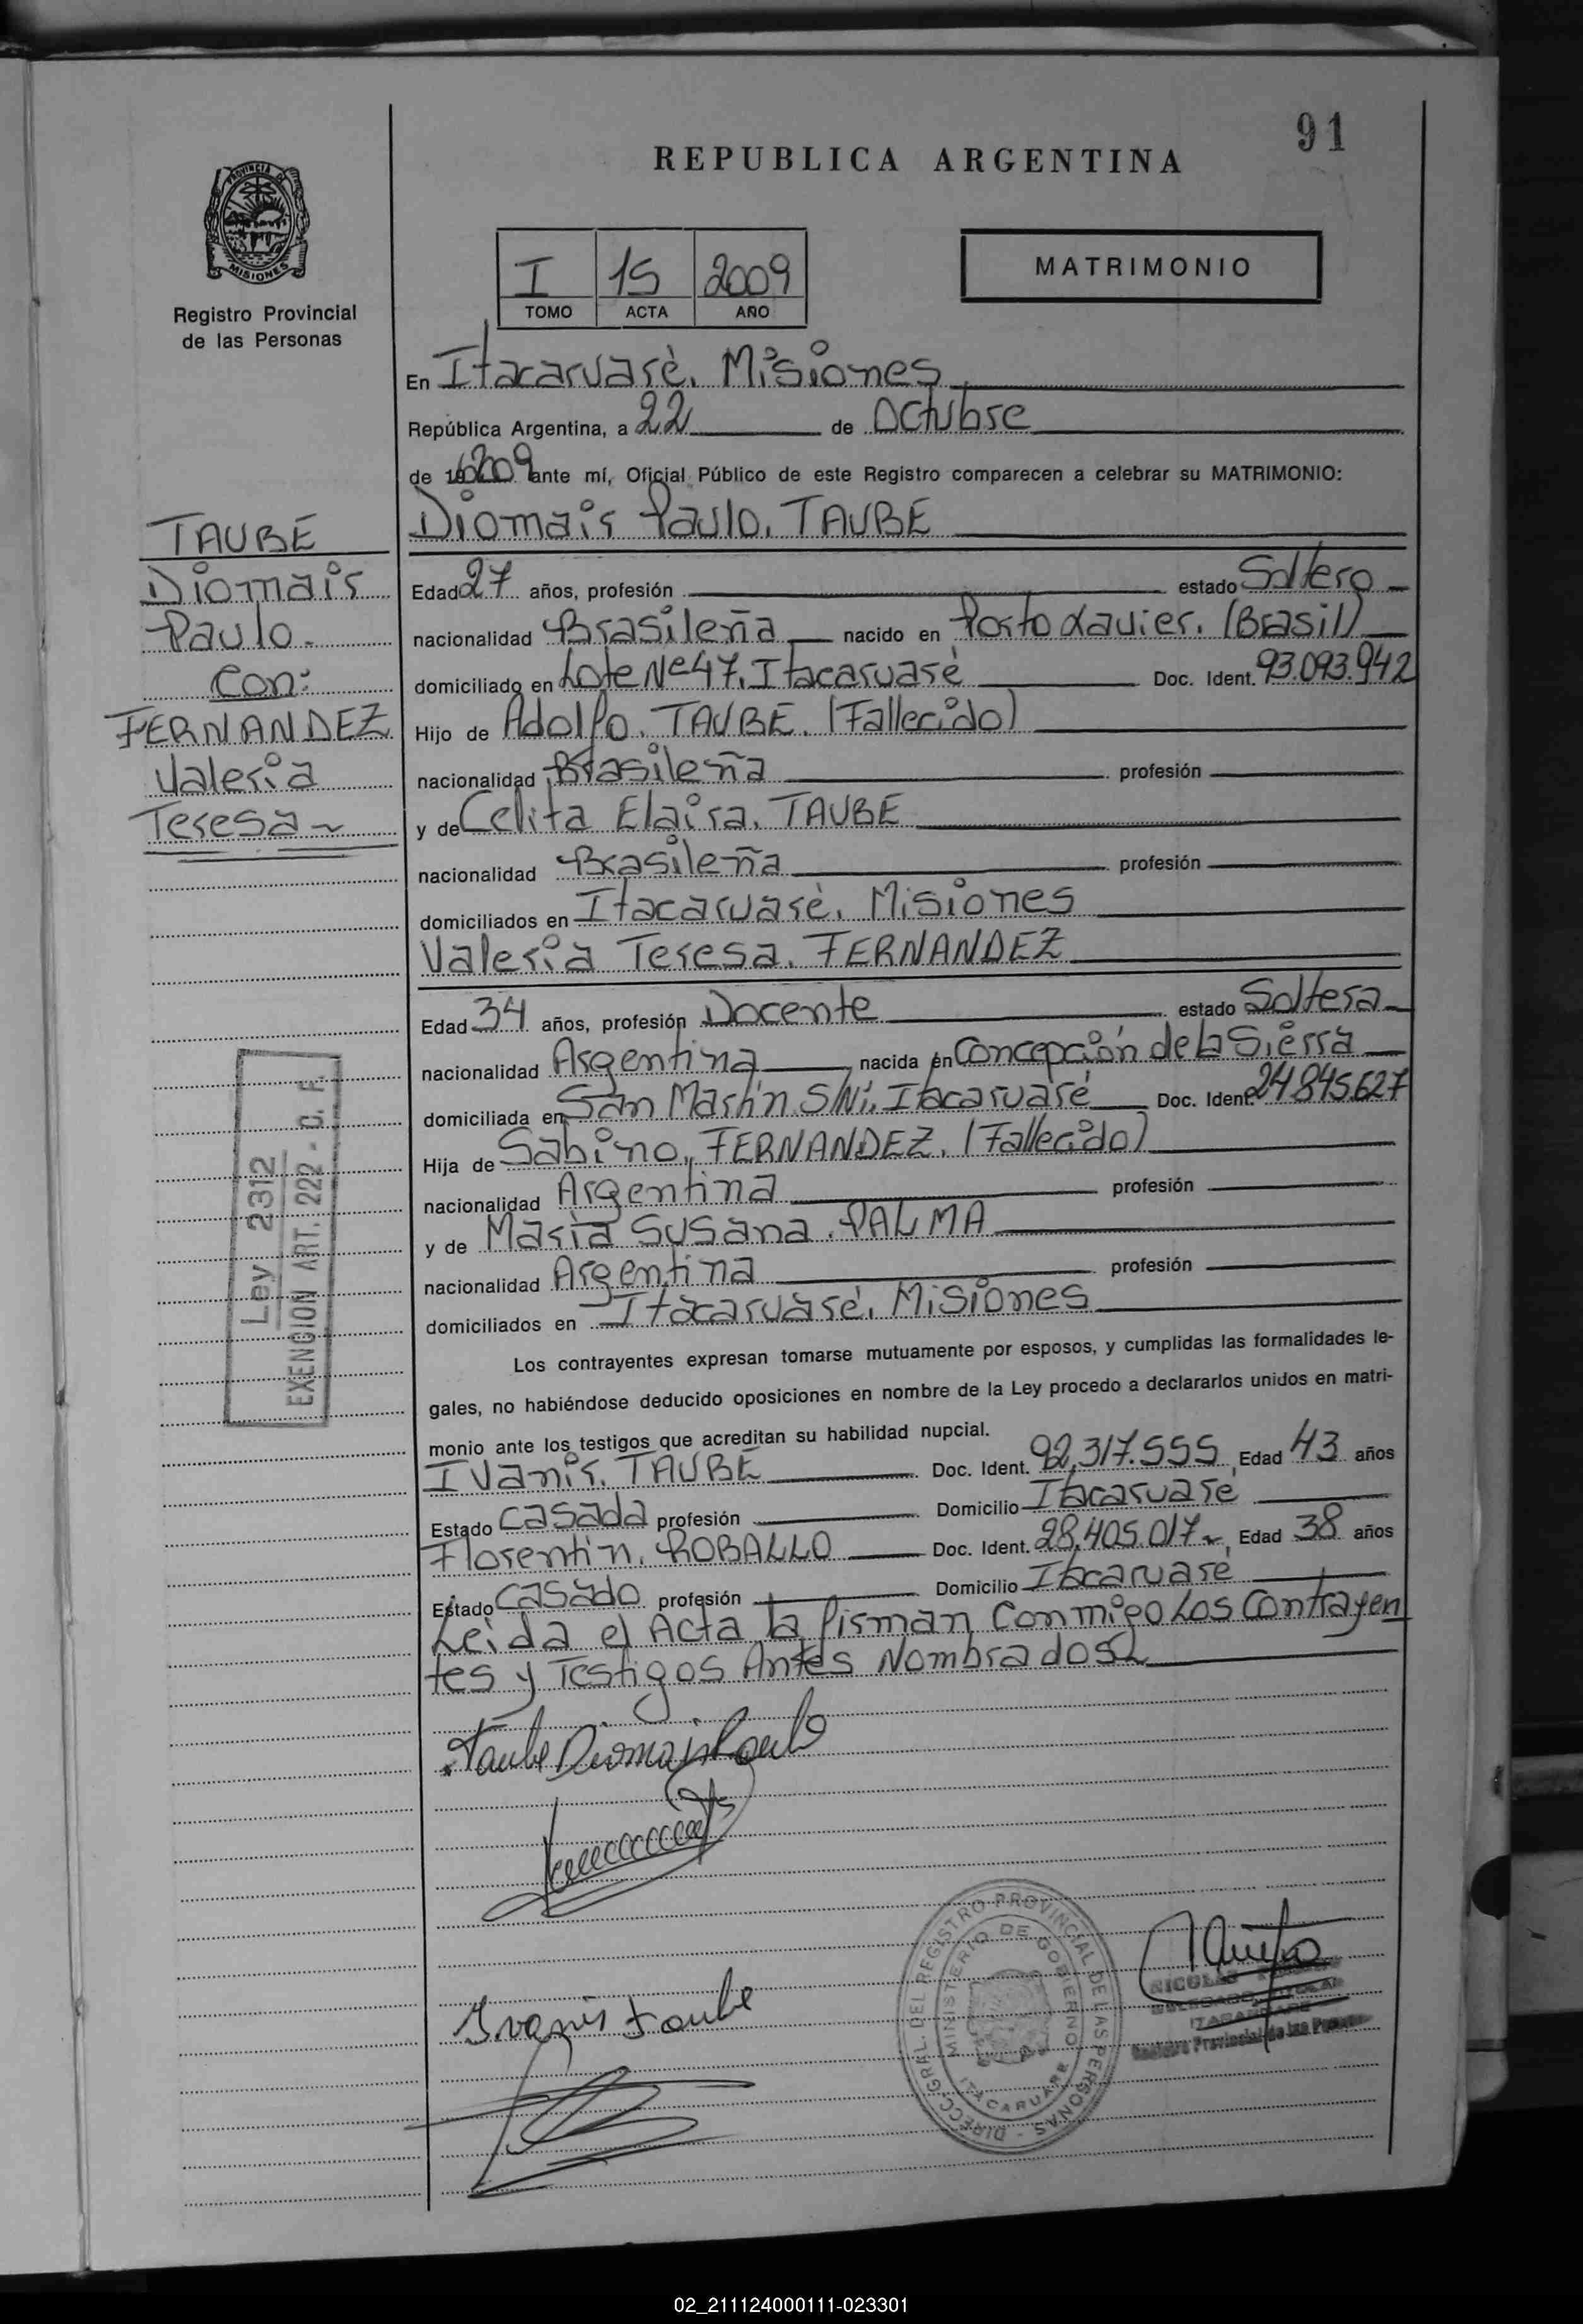 91
REPUBLICA ARGENTINA
PROVINCIA DE
MISIONES
Registro Provincial
de las Personas
I 15 2009
TOMO ACTA AÑO
MATRIMONIO
En Itacaruarè, Misiones
República Argentina, a 22 de Octubre
de 2009 ante mí, Oficial Público de este Registro comparecen a celebrar su MATRIMONIO:
Diomais Paulo, TAUBE
Edad 27 años, profesión estado Soltero
nacionalidad Brasileña nacido en Porto Xavier, (Brasil)
domiciliado en Lote Nº 47, Itacaruaré Doc. Ident. 93.093.942
Hijo de Adolfo, TAUBE, (Fallecido)
nacionalidad Brasileña profesión
y de Celita Elaira, TAUBE
nacionalidad Brasileña profesión
domiciliados en Itacaruarè, Misiones
Valeria Teresa, FERNANDEZ
Edad 34 años, profesión Docente estado Soltera
nacionalidad Argentina nacida en Concepción de la Sierra
domiciliada en San Martin S/N, Itacaruaré Doc. Ident. 24.845.627
Hija de Sabino, FERNANDEZ, (Fallecido)
nacionalidad Argentina profesión
y de Maria Susana, PALMA
nacionalidad Argentina profesión
domiciliados en Itacaruaré, Misiones
Los contrayentes expresan tomarse mutuamente por esposos, y cumplidas las formalidades le-
gales, no habiéndose deducido oposiciones en nombre de la Ley procedo a declararlos unidos en matri-
monio ante los testigos que acreditan su habilidad nupcial.
Ivanis, TAUBE Doc. Ident. 92.317.555 Edad 43 años
Estado Casada profesión Domicilio Itacaruaré
Florentin, ROBALLO Doc. Ident. 28.405.017 Edad 38 años
Estado Casado profesión Domicilio Itacaruaré
Leida el Acta la firman Conmigo Los Contrayen
tes y Testigos Antes Nombrados
TAUBE
Diomais
Paulo.
Con:
FERNANDEZ
Valeria
Teresa
Ley 2312
EXENCION ART. 222 - C. F.
Taube Diomais Paulo
Ivanis Taube
DIRECC. GRAL. DEL REGISTRO PROVINCIAL DE LAS PERSONAS
MINISTERIO DE GOBIERNO
ITACARUARE
NICOLAS
Registro Provincial de las Personas
02_211124000111-023301